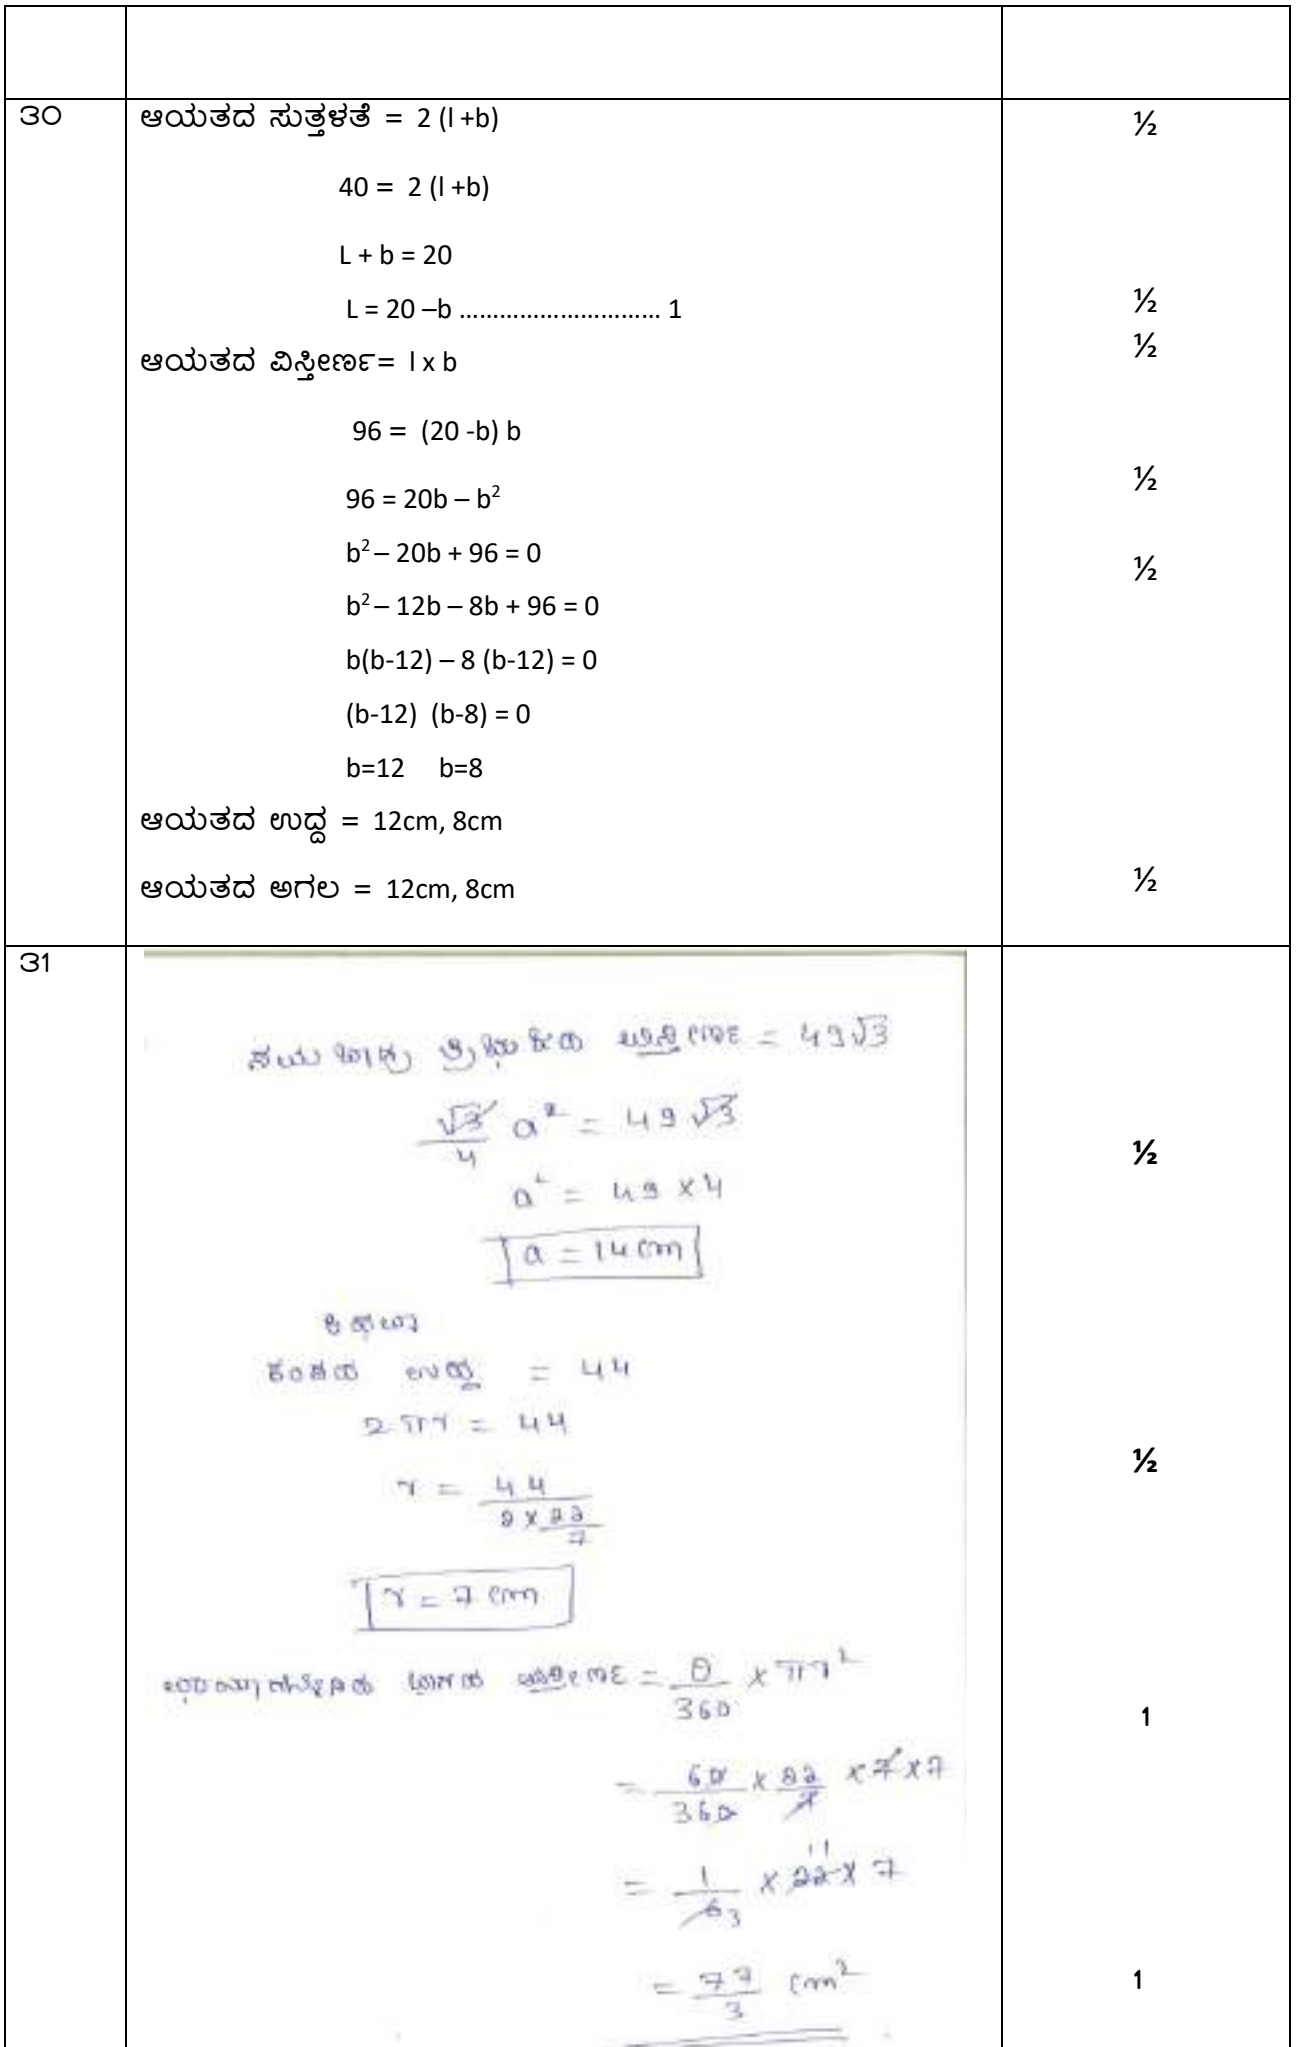 ೩೦
ಆಯತದ ಸುತ್ತಳತೆ = 2 (l +b)
½
40 = 2 (l +b)
L + b = 20
L = 20 –b ………………………… 1
½
ಆಯತದ ವಿಸ್ತೀರ್ಣ= l x b
½
96 = (20 -b) b
96 = 20b – b²
½
b² – 20b + 96 = 0
½
b² – 12b – 8b + 96 = 0
b(b-12) – 8 (b-12) = 0
(b-12) (b-8) = 0
b=12 b=8
ಆಯತದ ಉದ್ದ = 12cm, 8cm
ಆಯತದ ಅಗಲ = 12cm, 8cm
½
೩೧
ಸಮಬಾಹು ತ್ರಿಭುಜದ ವಿಸ್ತೀರ್ಣ = 49√3
√3/4 a² = 49√3
½
a² = 49 x 4
a = 14 cm
ಅಥವಾ
ಕಂಸದ ಉದ್ದ = 44
2πr = 44
½
r = 44/(2 x 22/7)
r = 7 cm
ವಿಸ್ತೀರ್ಣ = θ/360 x πr²
1
= 60/360 x 22/7 x 7 x 7
= 1/6 3 x 22 11 x 7
= 77/3 cm²
1